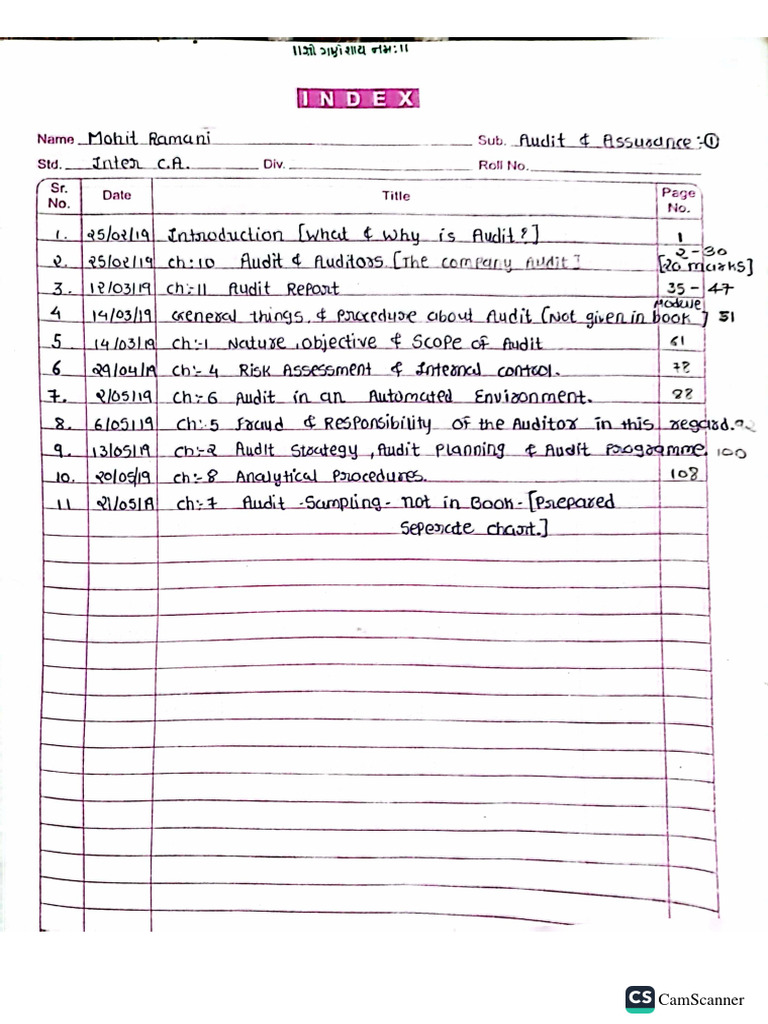 ॥શ્રી ગણેશાય નમઃ॥
INDEX
Name Mohit Ramani Sub. Audit & Assurance :-①
Std. Inter C.A. Div. Roll No.
Sr. No. Date Title Page No.
1. 25/02/19 Introduction [What & Why is Audit?] 1
2. 25/02/19 ch:10 Audit & Auditors [The company Audit] 2-30 [20 marks]
3. 12/03/19 ch:-11 Audit Report 35-47
4 14/03/19 General things & Procedure about Audit [Not given in module book] 51
5 14/03/19 ch:-1 Nature, objective & Scope of Audit 61
6 29/04/19 ch:-4 Risk Assessment & Internal control. 78
7. 2/05/19 ch:-6 Audit in an Automated Environment. 88
8. 6/05/19 ch:-5 Fraud & Responsibility of the Auditor in this regard. 92
9. 13/05/19 ch:-2 Audit Strategy, Audit Planning & Audit Programme. 100
10. 20/05/19 ch:-8 Analytical Procedures. 108
11 21/05/19 ch:-7 Audit -Sampling- not in Book-[Prepared
Seperate chart.]
CS CamScanner